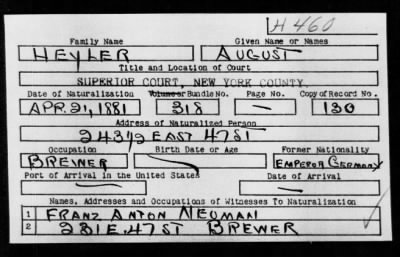 H 460
Family Name Given Name or Names
HEYLER AUGUST
Title and Location of Court
SUPERIOR COURT, NEW YORK COUNTY
Date of Naturalization Volume or Bundle No. Page No. Copy of Record No.
APR. 21, 1881 318 — 130
Address of Naturalized Person
243½ EAST 47 ST
Occupation Birth Date or Age Former Nationality
BREWER — EMPEROR GERMANY
Port of Arrival in the United States Date of Arrival
— —
Names, Addresses and Occupations of Witnesses To Naturalization
1 FRANZ ANTON NEUMAN
2 231 E. 47 ST BREWER